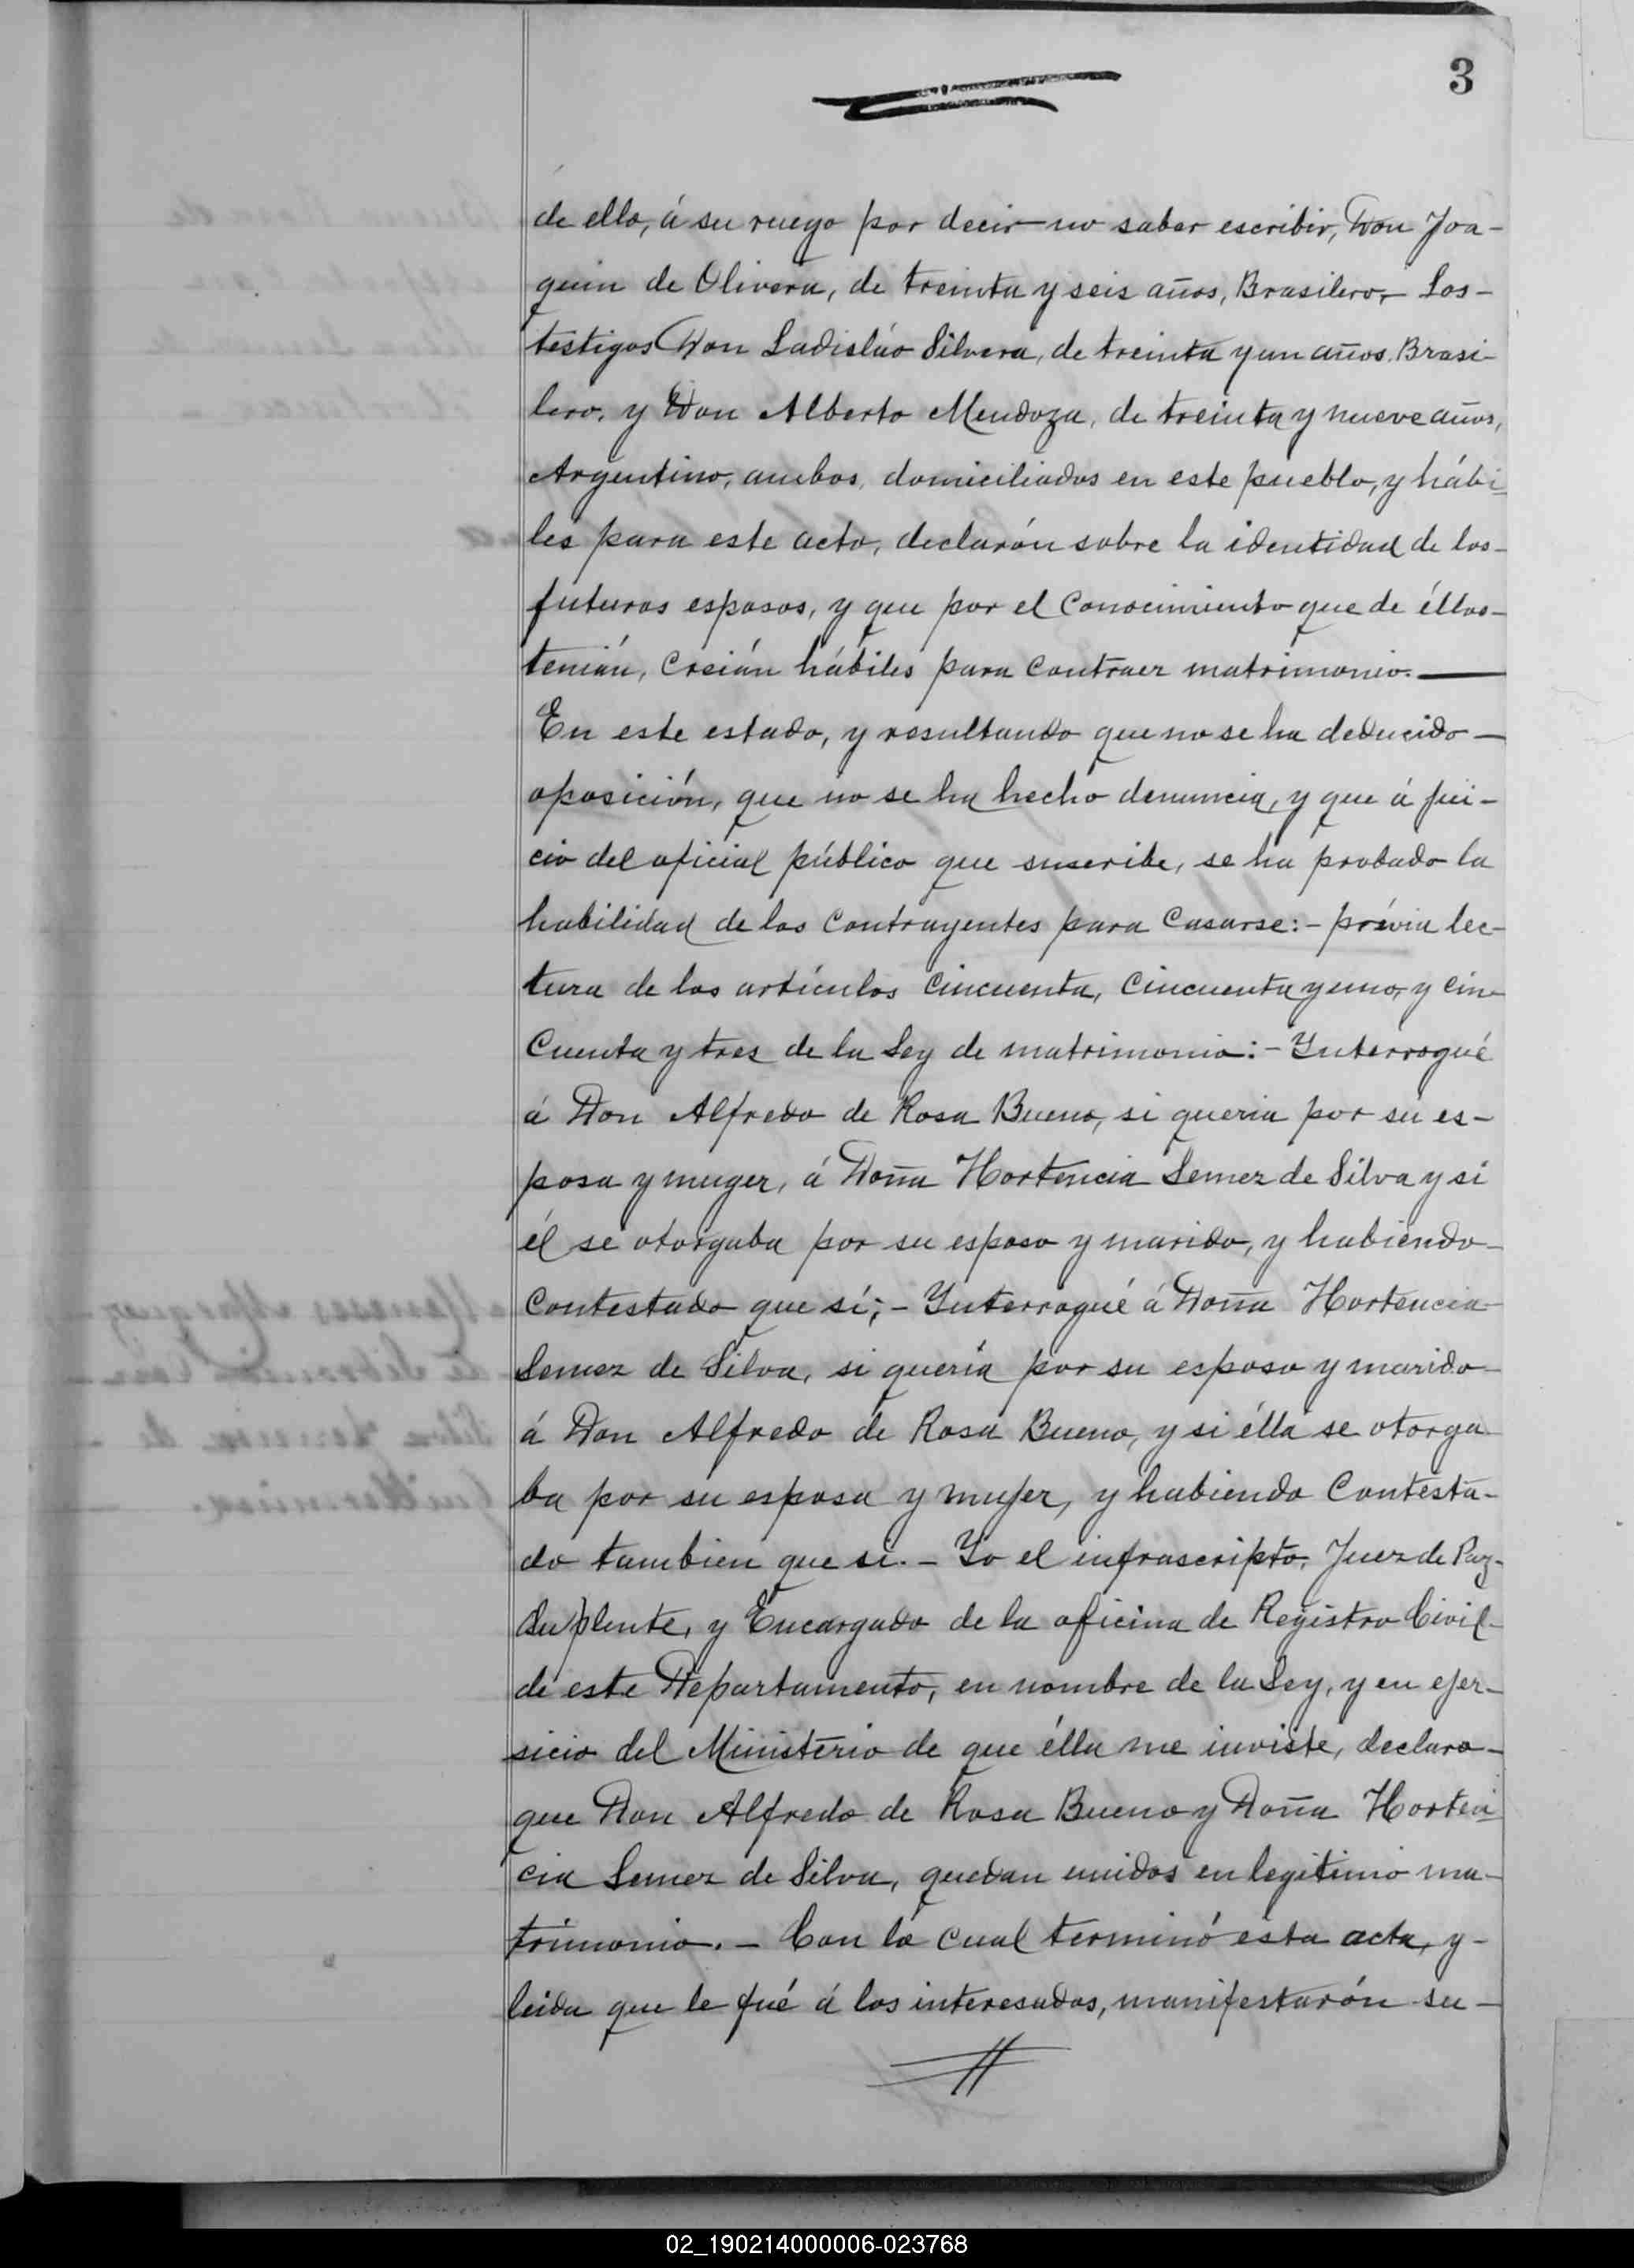 3
de ello, á su ruego por decir no saber escribir, Don Joa-
quin de Olivera, de treinta y seis años, Brasilero,- Los-
testigos Don Ladisláo Silvera, de treinta y un años, Brasi-
lero, y Don Alberto Mendoza, de treinta y nueve años,
Argentino, ambos, domiciliados en este pueblo, y hábi-
les para este acto, declarón sobre la identidad de los-
futuros esposos, y que por el Conocimiento que de éllos-
tenián, Creián hábiles para Contraer matrimonio.-
En este estado, y resultando que no se ha deducido-
oposición, que no se ha hecho denuncia, y que á jui-
cio del oficial público que suscribe, se ha probado la
habilidad de los Contrayentes para Casarse:- prévia lec-
tura de los artículos Cincuenta, Cincuenta y uno, y cin-
Cuenta y tres de la Ley de matrimonio:- Interrogué
á Don Alfredo de Rosa Bueno, si queria por su es-
posa y muger, á Doña Hortencia Lemez de Silva y si
él se otorgaba por su esposo y marido, y habiendo-
Contestado que sí;- Interrogué á Doña Hortencia-
Lemez de Silva, si quería por su esposo y marido-
á Don Alfredo de Rosa Bueno, y si élla se otorga-
ba por su esposa y mujer, y habiendo Contesta-
do tambien que si.- Yo el infrascripto, Juez de Paz-
Suplente, y Encargado de la oficina de Registro Civil-
de este Departamento, en nombre de la Ley, y en ejer-
sicio del Ministerio de que élla me inviste, declaro-
que Don Alfredo de Rosa Bueno y Doña Horten-
cia Lemez de Silva, quedan unidos en legitimo ma-
trimonio.- Con lo Cual terminó esta acta, y-
leida que le fué á los interesados, manifestarón su-
02_190214000006-023768